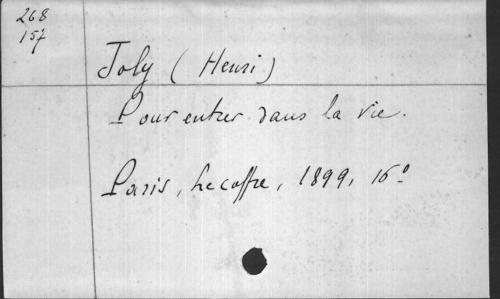 268
157
Joly (Henri)
Pour entrer dans la vie.
Paris, Lecoffre, 1899, 16º